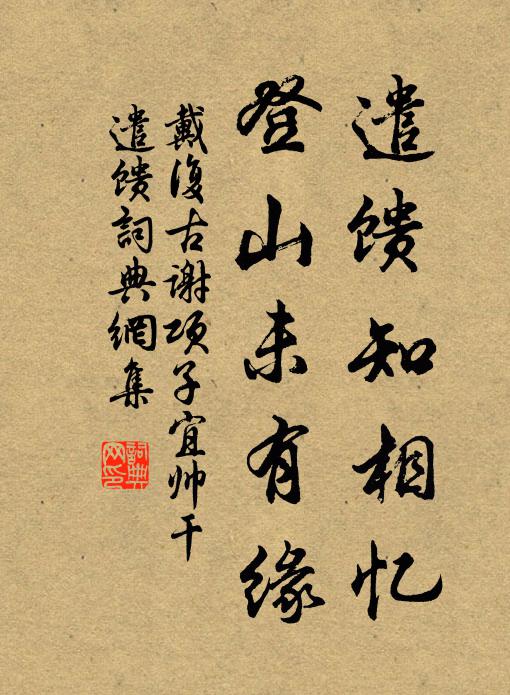 遣馈知相忆
登山未有缘
戴復古谢项子宜帅干
遣馈詞典網集
詞典网印